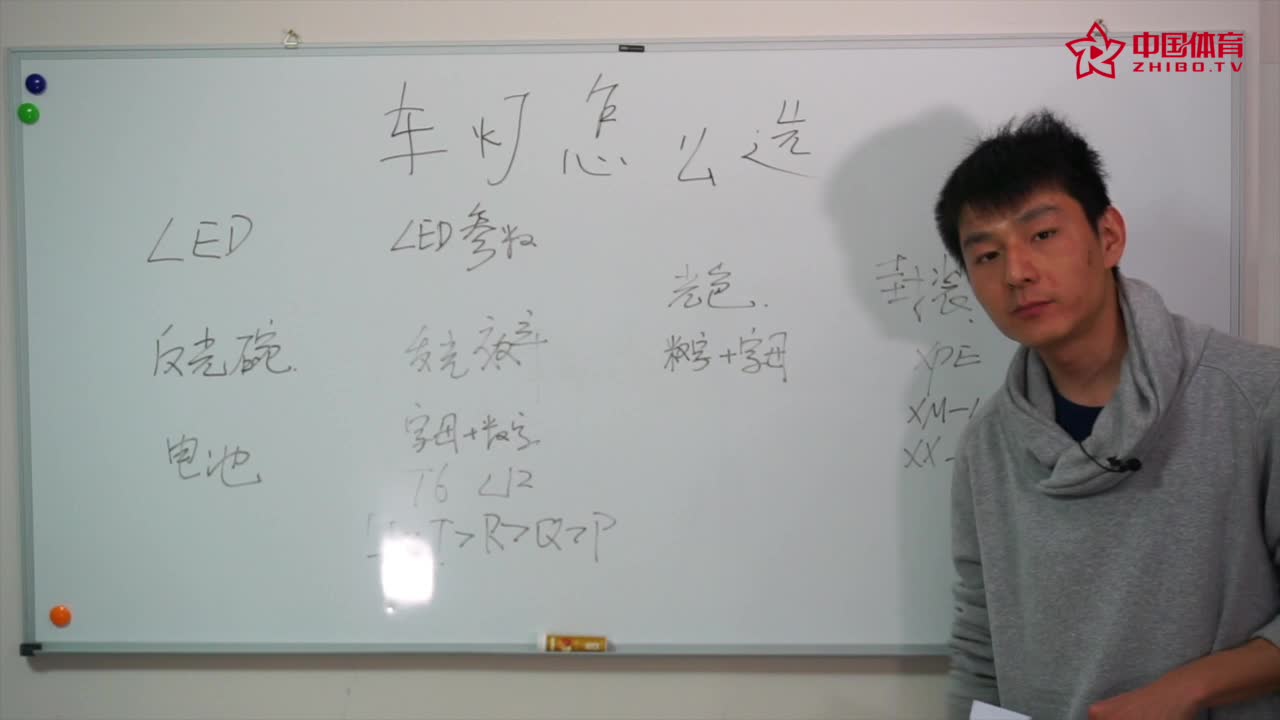 中国体育
ZHIBO.TV
车灯怎么选
LED
LED参数
光色.
封装.
反光碗.
发光效率
数字+字母
XPE
XM-L
XX-
电池
字母+数字
T6 U2
U>T>R>Q>P